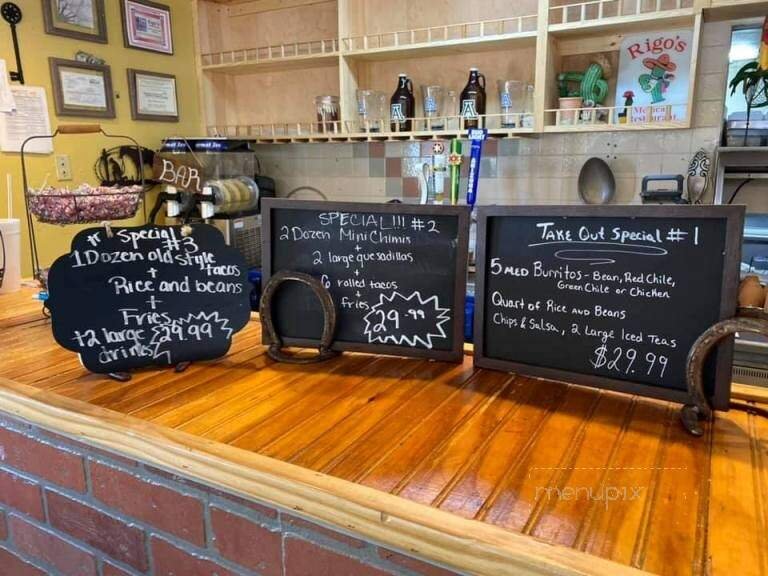 Rigo's
Mexican
Restaurant
BAR
A
A
BUD LIGHT
Special
#3
1 Dozen old style
tacos
+
Rice and beans
+
Fries
+2 large
drinks
$29.99
SPECIAL!!! #2
2 Dozen Mini Chimis
+
2 large quesadillas
+
6 rolled tacos
+
fries
$29.99
Take Out Special #1
5 med Burritos - Bean, Red Chile,
Green Chile or Chicken
Quart of Rice and Beans
Chips & Salsa, 2 Large Iced Teas
$29.99
menupix